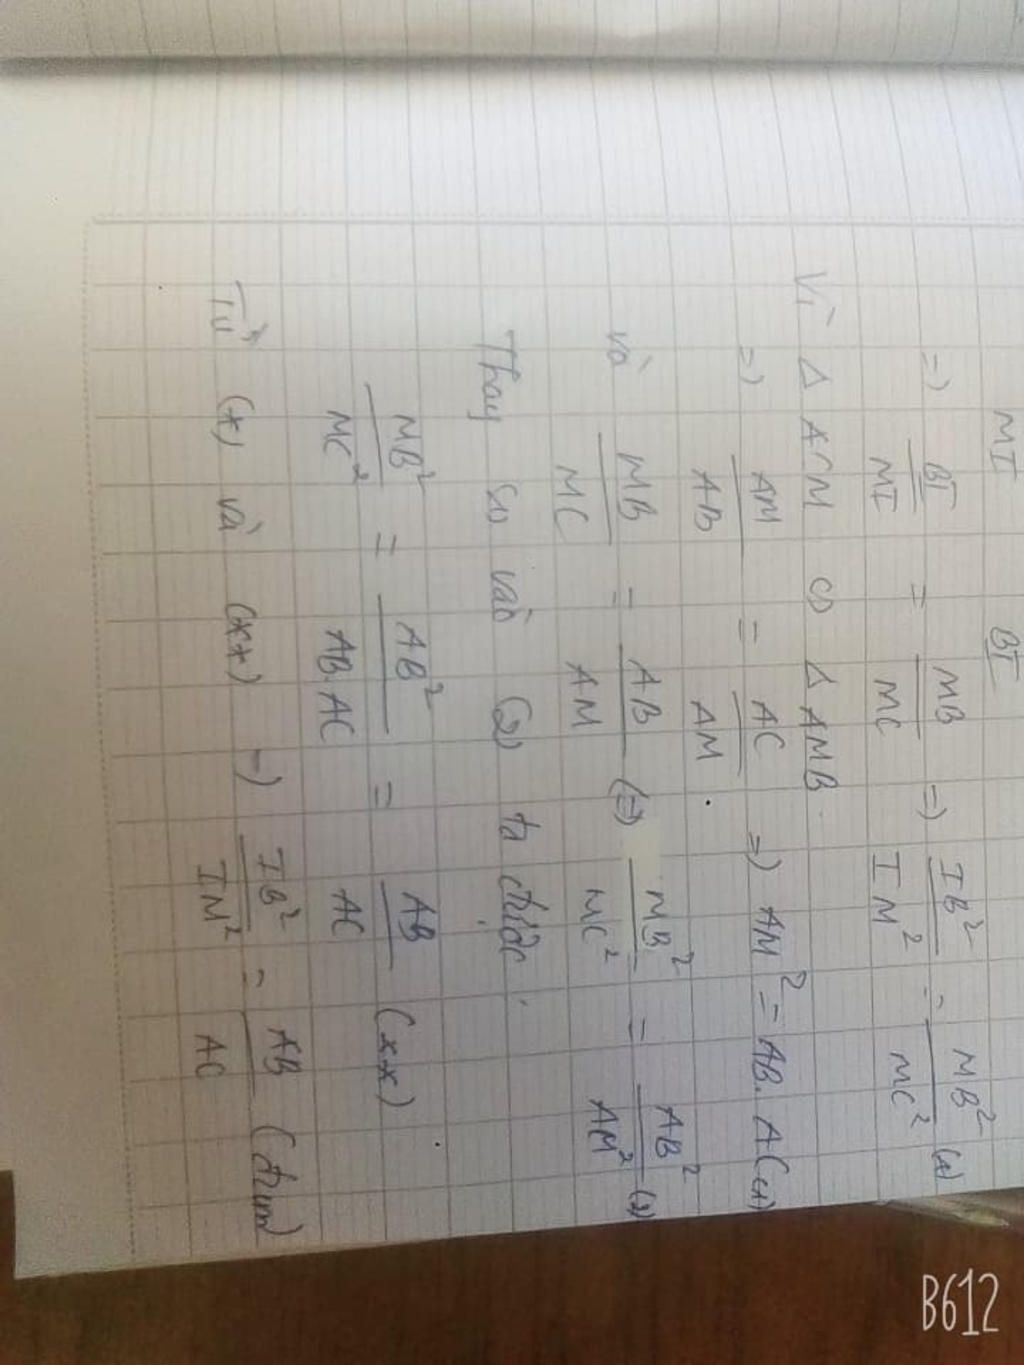 MI BI
=) BI/MI = MB/MC =) IB²/IM² = MB²/MC² (*)
Vì Δ ACM ∽ Δ AMB
=) AM/AB = AC/AM =) AM² = AB.AC (1)
và MB/MC = AB/AM (=) MB²/MC² = AB²/AM² (2)
Thay (1) vào (2) ta được:
MB²/MC² = AB²/AB.AC = AB/AC (**)
Từ (*) và (**) =) IB²/IM² = AB/AC (đpcm)
B612